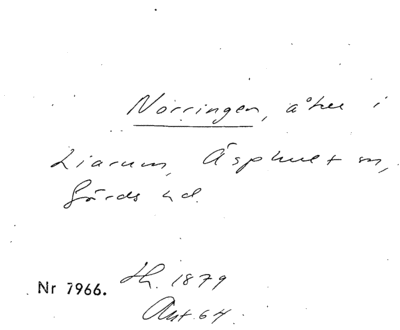 Norringen, åker i
Liarum, Äsphult sn,
Gärds hd.
Nr 7966. Lh. 1879
Akt 64.